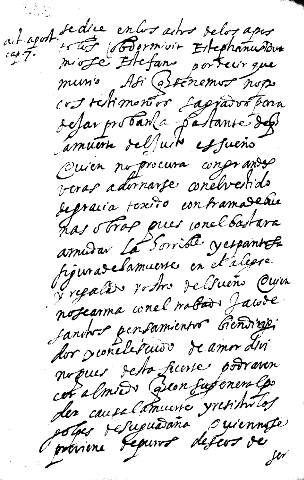 act. apost.
cap. 7.
se dice en los actos de los apos
toles obdormivit Estephanus dur
miose Estefano por decir que
murio Asi q tenemos no po
cos testimonios sagrados para
dejar probanza bastante de q
la muerte del justo es sueño
Quien no procura con grandes
veras adornarse con el vestido
de gracia tejido con trama de bue
nas obras pues con el bastara
a mudar la horrible y espantosa
figura de la muerte en el alegre
y regalado rostro del sueño Quien
no se arma con el trabado jaco de
santos pensamientos bien
dos y con el escudo de amor divi
no pues desta suerte podra ven
cer al miedo q con su general po
der causa la muerte y resistir los
golpes de su guadaña Quien no se
previene de puros deseos de
ser